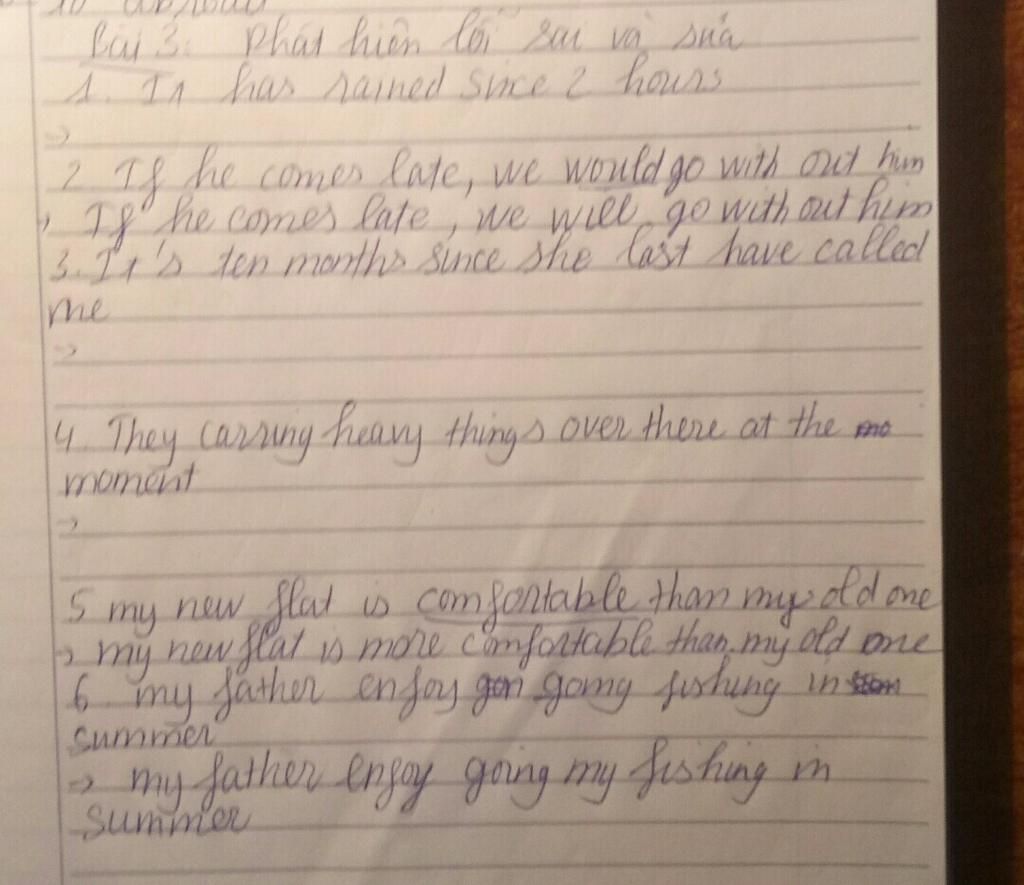 10 abroad
Bài 3: Phát hiện lỗi sai và sửa
1. It has rained since 2 hours
->
2. If he comes late, we would go with out him
-> If he comes late, we will go with out him
3. It's ten months since she last have called
me
->
4. They carring heavy things over there at the mo
moment
->
5 my new flat is comfortable than my old one
-> my new flat is more comfortable than my old one
6. my father enjoy going fishing in
summer
-> my father enjoy going my fishing in
summer